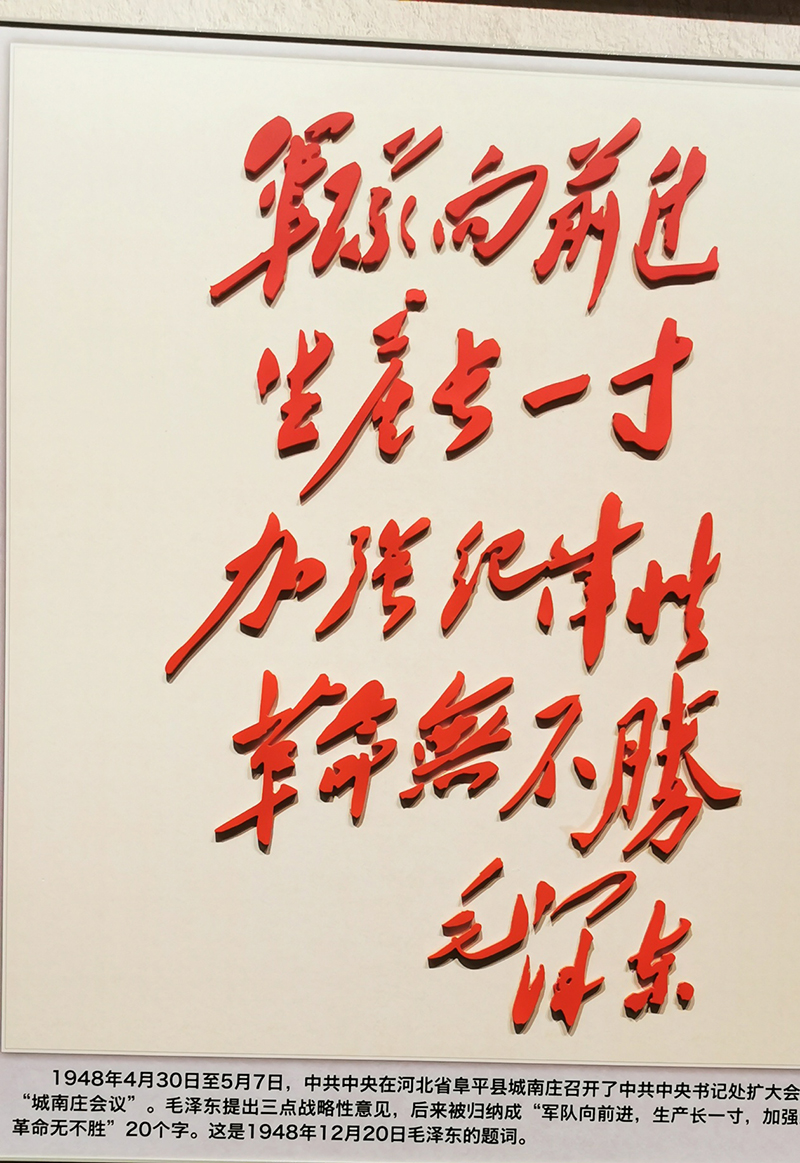 军队向前进
生产长一寸
加强纪律性
革命無不勝
毛泽东
1948年4月30日至5月7日，中共中央在河北省阜平县城南庄召开了中共中央书记处扩大会
“城南庄会议”。毛泽东提出三点战略性意见，后来被归纳成“军队向前进，生产长一寸，加强
革命无不胜”20个字。这是1948年12月20日毛泽东的题词。